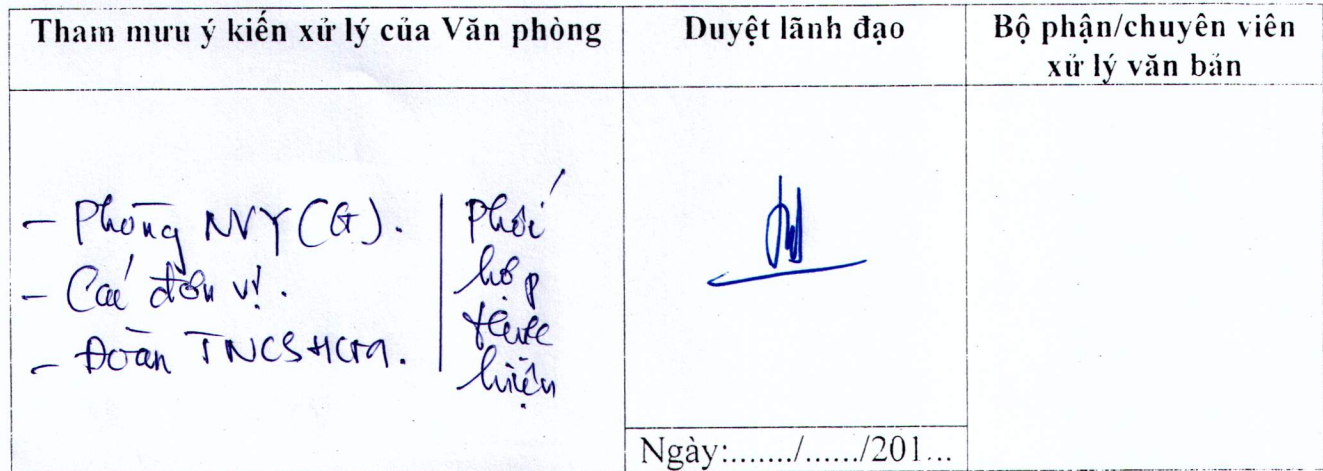 Tham mưu ý kiến xử lý của Văn phòng
Duyệt lãnh đạo
Bộ phận/chuyên viên
xử lý văn bản
- Phòng NVY (G).
- Các đơn vị.
- Đoàn TNCSHCM.
Phối
hợp
thực
hiện
Ngày:......./....../201...